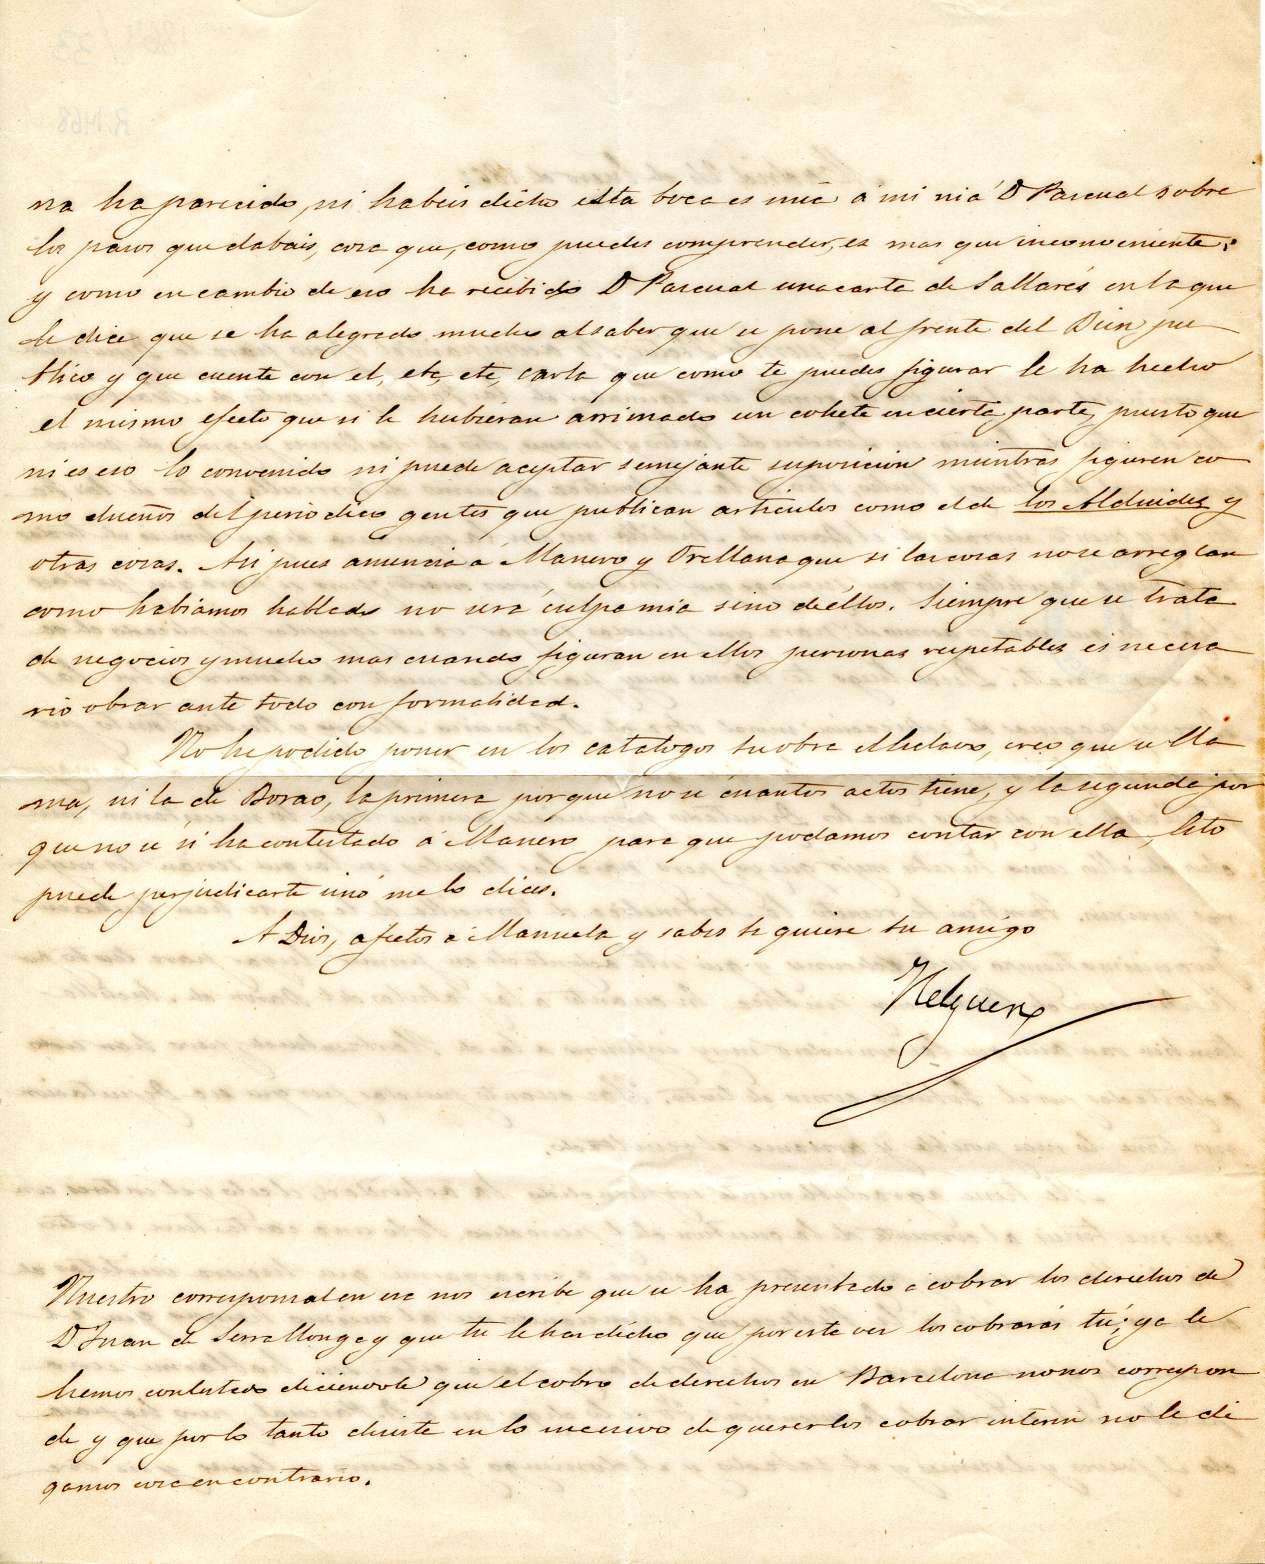 na ha parecido, ni habeis dicho esta boca es mia á mi ni á D Pascual sobre
los pasos que dabais, cosa que, como puedes comprender, es mas que inconveniente;
y como en cambio de eso ha recibido D Pascual una carta de Sallarés en la que
le dice que se ha alegrado mucho al saber que se pone al frente del Bien pu
blico y que cuente con el, etc, etc, carta que como te puedes figurar le ha hecho
el mismo efecto que si le hubieran arrimado un cohete en cierta parte, puesto que
ni es eso lo convenido ni puede aceptar semejante suposicion mientras figuren co
mo dueños del periodico gentes que publican articulos como el de los Alduides y
otras cosas. Asi pues anuncia á Manero y Orellana que si las cosas no se arreglan
como habiamos hablado no será culpa mia sino de éllos. Siempre que se trata
de negocios y mucho mas cuando figuran en ellos personas respetables es necesa
rio obrar ante todo con formalidad.
No he podido poner en los catalogos tu obra el hidavo, creo que se lla
ma, ni la de Borao, la primera porque no sé cuantos actos tiene, y la segunda por
que no sé si ha contestado á Manero para que podamos contar con ella, Esto
puede perjudicarte sinó me lo dices.
A Dios, afectos á Manuela y sabes te quiere tu amigo
Helguero
Nuestro corresponsal en esa nos escribe que se ha presentado á cobrar los derechos de
D Juan de Serrallonga y que tu le has dicho que por esta vez los cobrarás tú; ya le
hemos contestado diciendole que el cobro de derechos en Barcelona no nos correspon
de y que por lo tanto desista en lo sucesivo de quererlos cobrar interin no le di
gamos cosa en contrario.